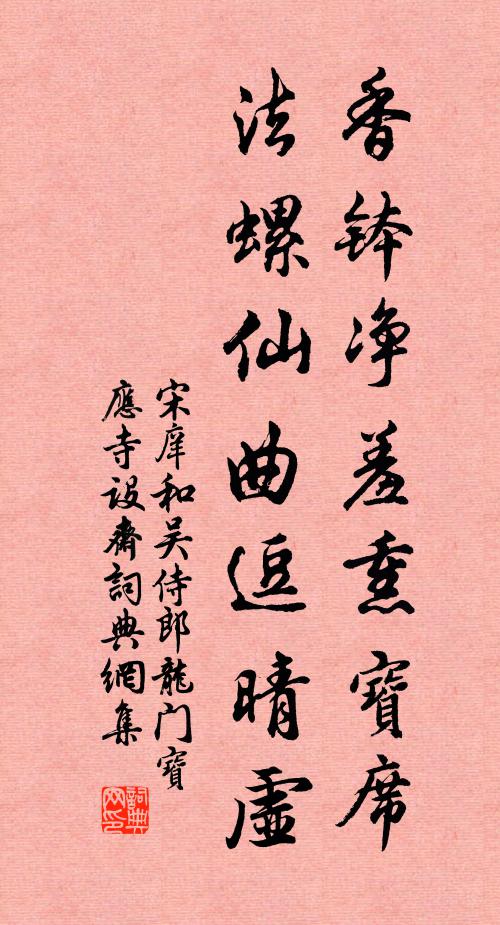 香钵净羞熏寶席
法螺仙曲逗晴虛
宋庠和吴侍郎龍门寶
應寺設齋詞典網集
詞典
网印